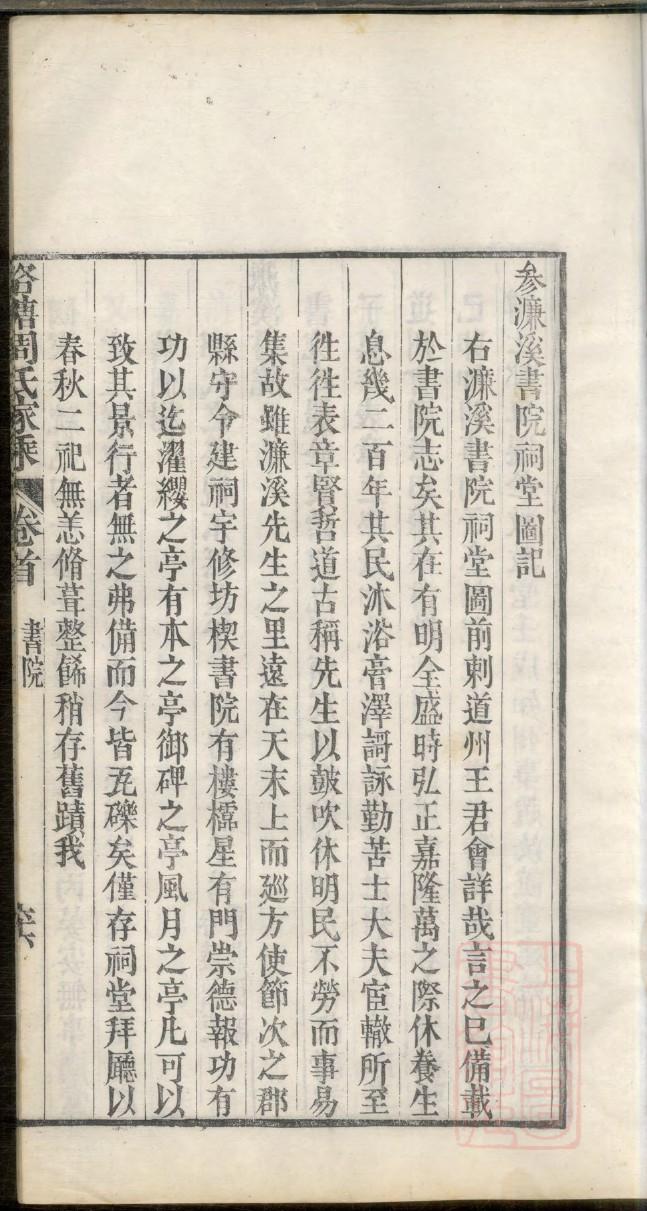 参濂溪書院祠堂圖記
右濂溪書院祠堂圖前刺道州王君會詳哉言之已備載
於書院志矣其在有明全盛時弘正嘉隆萬之際休養生
息幾二百年其民沐浴膏澤謌詠勤苦士大夫宦轍所至
徃徃表章賢哲道古稱先生以皷吹休明民不勞而事易
集故雖濂溪先生之里遠在天末上而廵方使節次之郡
縣守令建祠宇修坊楔書院有樓櫺星有門崇德報功有
功以迄濯纓之亭有本之亭御碑之亭風月之亭凡可以
致其景行者無之弗備而今皆瓦礫矣僅存祠堂拜廳以
春秋二祀無恙脩葺整餙稍存舊蹟我
周氏家乘 卷首 書院 六